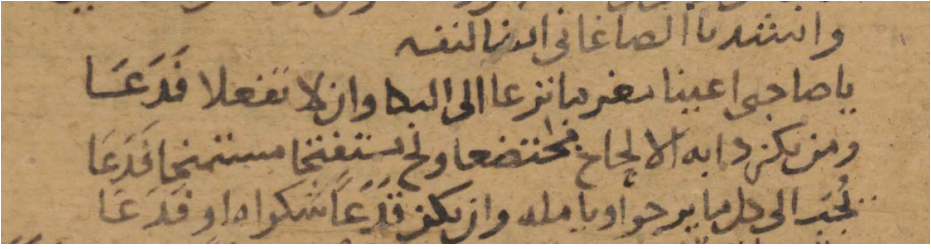 وانشدنا الصاغاني ايضا لنفسه
يا صاحبي اعينا مغرما نزعا الى البكا وان لا تفعلا فدعا
ومن يكن دابه الالحاح مختضعا ولج مستفتحا مستمنحا قدعا
يجب الى كل ما يرجوا ويامله وان يكن قدعا شكواه او قدعا